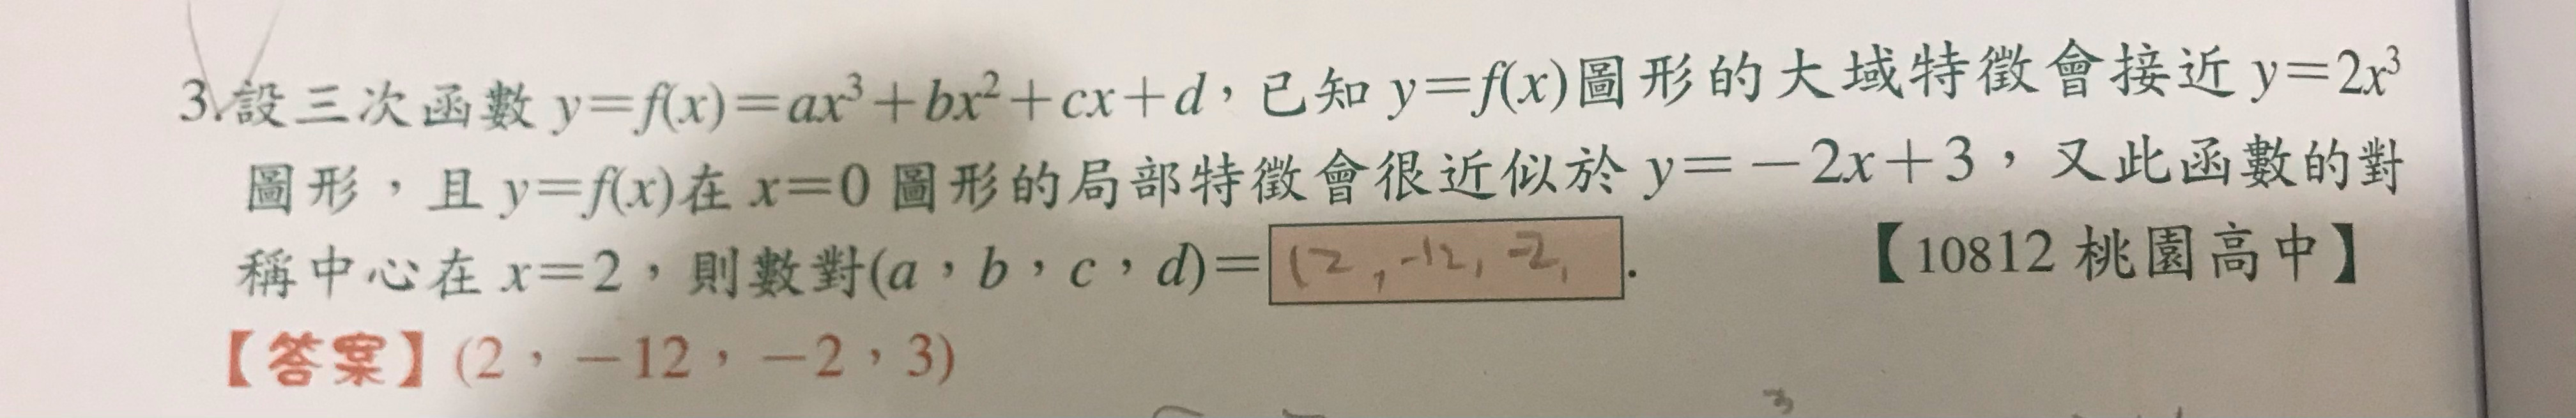 3.設三次函數 y=f(x)=ax³+bx²+cx+d，已知 y=f(x)圖形的大域特徵會接近 y=2x³
圖形，且 y=f(x)在 x=0 圖形的局部特徵會很近似於 y=－2x+3，又此函數的對
稱中心在 x=2，則數對(a，b，c，d)= (2, -12, -2, . 【10812 桃園高中】
【答案】(2，－12，－2，3)
3